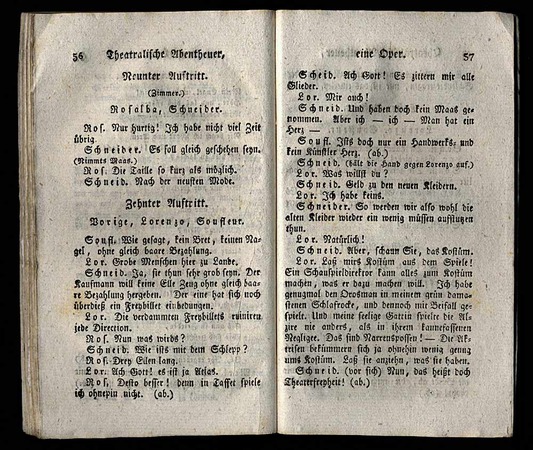 56 Theatralische Abentheuer,
Neunter Auftritt.
(Zimmer.)
Rosalba, Schneider.
Ros. Nur hurtig! Ich habe nicht viel Zeit
übrig.
Schneider. Es soll gleich geschehen seyn.
(Nimmts Maas.)
Ros. Die Taille so kurz als möglich.
Schneid. Nach der neusten Mode.
Zehnter Auftritt.
Vorige, Lorenzo, Soufleur.
Soufl. Wie gesagt, kein Bret, keinen Na-
gel, ohne gleich baare Bezahlung.
Lor. Grobe Menschen hier zu Lande.
Schneid. Ja, sie thun sehr grob seyn. Der
Kaufmann will keine Elle Zeug ohne gleich baa-
re Bezahlung hergeben. Der eine hat sich noch
überdieß ein Freybillet einbedungen.
Lor. Die verdammten Freybillets ruiniren
jede Direction.
Ros. Nun was wirds?
Schneid. Wie ists mit dem Schlepp?
Ros. Drey Ellen lang.
Lor. Ach Gott! es ist ja Atlas.
Ros. Desto besser! denn in Taffet spiele
ich ohnehin nicht. (ab.)
eine Oper. 57
Schneid. Ach Gott! Es zittern mir alle
Glieder.
Lor. Mir auch!
Schneid. Und haben doch kein Maas ge-
nommen. Aber ich — ich — Man hat ein
Herz —
Soufl. Ists doch nur ein Handwerks- und
kein Künstler Herz. (ab.)
Schneid. (hält die Hand gegen Lorenzo auf.)
Lor. Was willst du?
Schneid. Geld zu den neuen Kleidern.
Lor. Ich habe keins.
Schneider. So werden wir also wohl die
alten Kleider wieder ein wenig müssen aufstutzen
thun.
Lor. Natürlich!
Schneid. Aber, schaun Sie, das Kostüm.
Lor. Laß mirs Kostüm aus dem Spiele!
Ein Schauspieldirektor kann alles zum Kostüm
machen, was er dazu machen will. Ich habe
genugmal den Orosman in meinem grün dama-
stenen Schlafrocke, und dennoch mit Beifall ge-
spielt. Und meine seelige Gattin spielte die Al-
zire nie anders, als in ihrem kannefassenen
Negligee. Das sind Narrenspossen! — Die Ak-
trisen bekümmern sich ja ohnehin wenig genug
ums Kostüm. Laß sie anziehn, was sie haben.
Schneid. (vor sich) Nun, das heißt doch
Theaterfreyheit! (ab.)